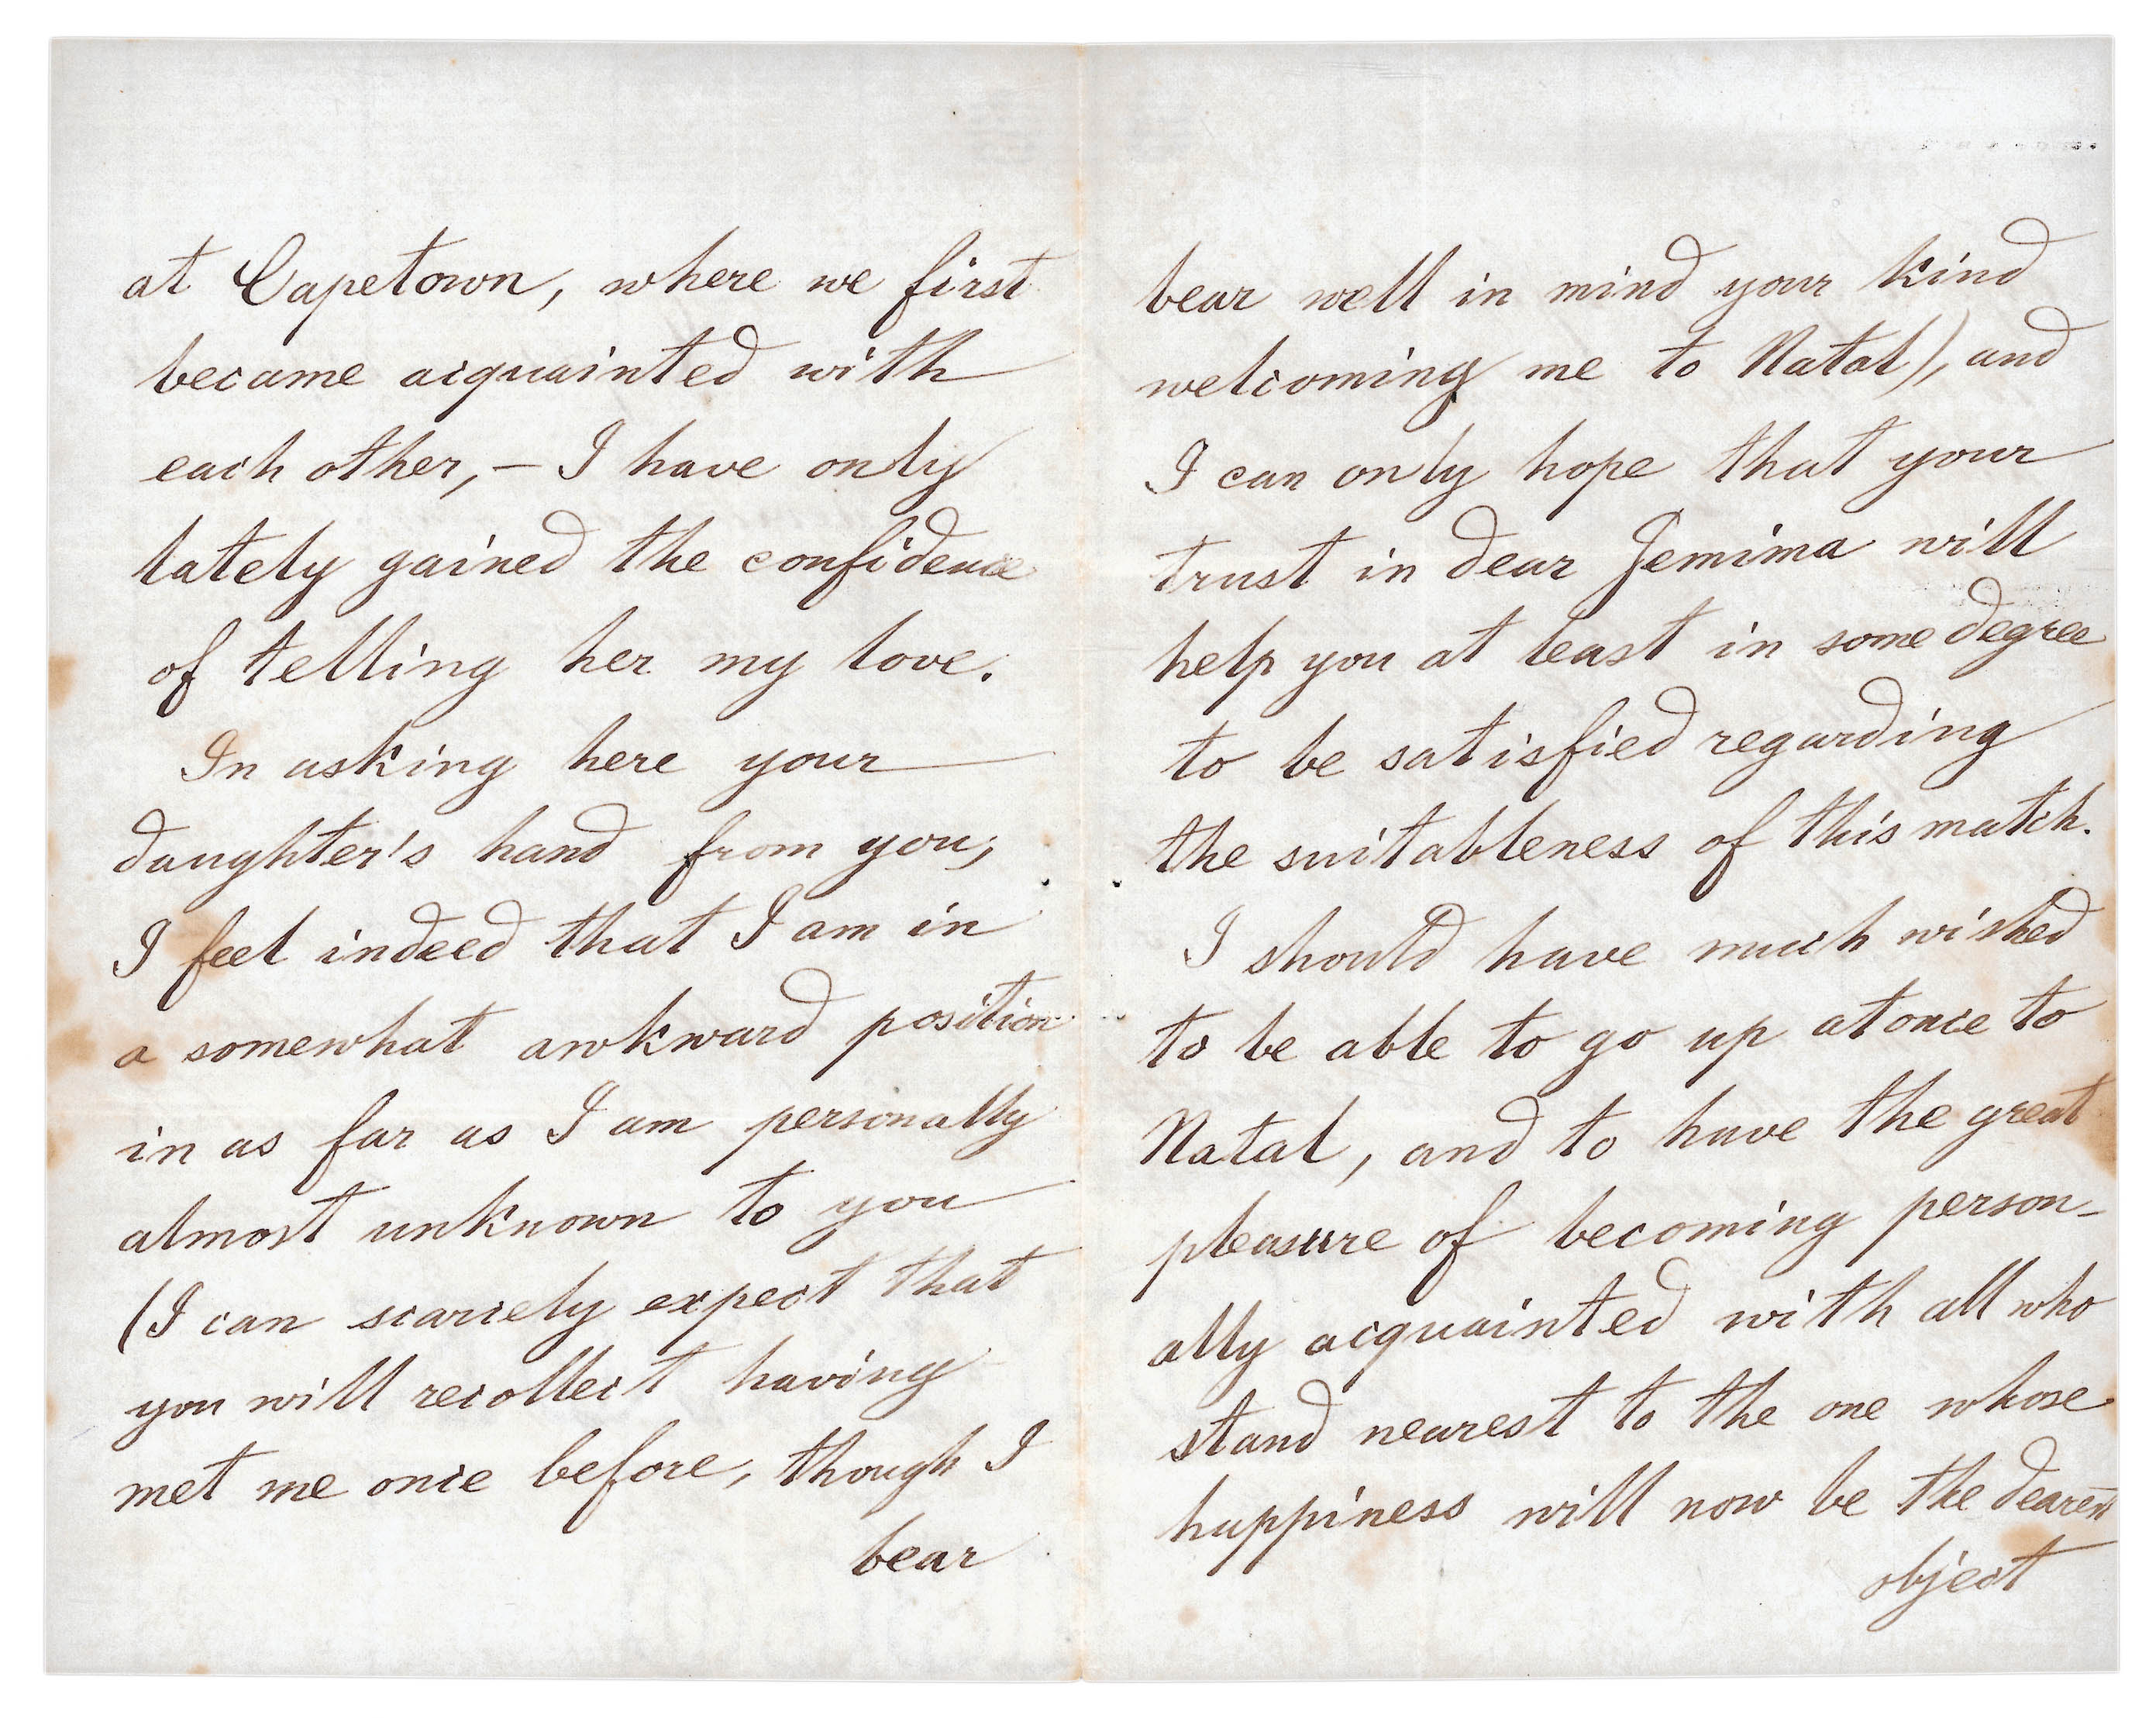 at Capetown, where we first
became acquainted with
each other, – I have only
lately gained the confidence
of telling her my love.
In asking here your
daughter's hand from you,
I feel indeed that I am in
a somewhat awkward position
in as far as I am personally
almost unknown to you
(I can scarcely expect that
you will recollect having
met me once before, though I
bear
bear well in mind your kind
welcoming me to Natal), and
I can only hope that your
trust in dear Jemima will
help you at least in some degree
to be satisfied regarding
the suitableness of this match.
I should have much wished
to be able to go up at once to
Natal, and to have the great
pleasure of becoming person-
ally acquainted with all who
stand nearest to the one whose
happiness will now be the dearest
object